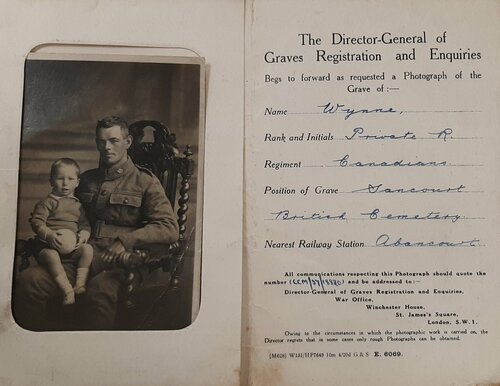 The Director-General of
Graves Registration and Enquiries
Begs to forward as requested a Photograph of the
Grave of :—
Name Wynne,
Rank and Initials Private R.
Regiment Canadians.
Position of Grave Sancourt
British Cemetery.
Nearest Railway Station Abancourt.
All communications respecting this Photograph should quote the
number and be addressed to :—
Director-General of Graves Registration and Enquiries,
War Office,
Winchester House,
St. James's Square,
London, S.W.1.
Owing to the circumstances in which the photographic work is carried on, the
Director regrets that in some cases only rough Photographs can be obtained.
10m 4/20d G & S E. 6069.